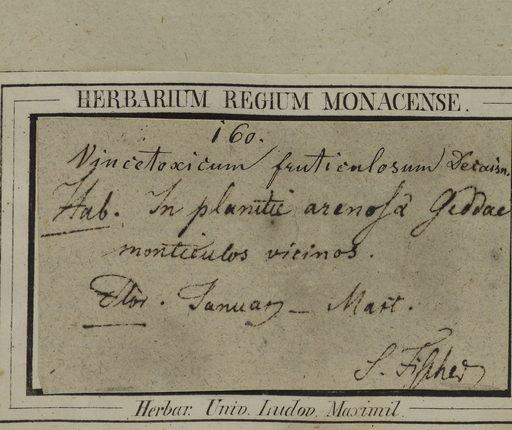 HERBARIUM REGIUM MONACENSE.
160.
Vincetoxicum fruticulosum Decaisn.
Hab. In planitie arenosâ Geddae
monticulos vicinos.
Flor. January – Mart.
S. Fischer
Herbar. Univ. Ludov. Maximil.